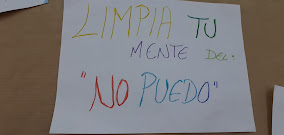 LIMPIA TU
MENTE DEL:
"NO PUEDO"